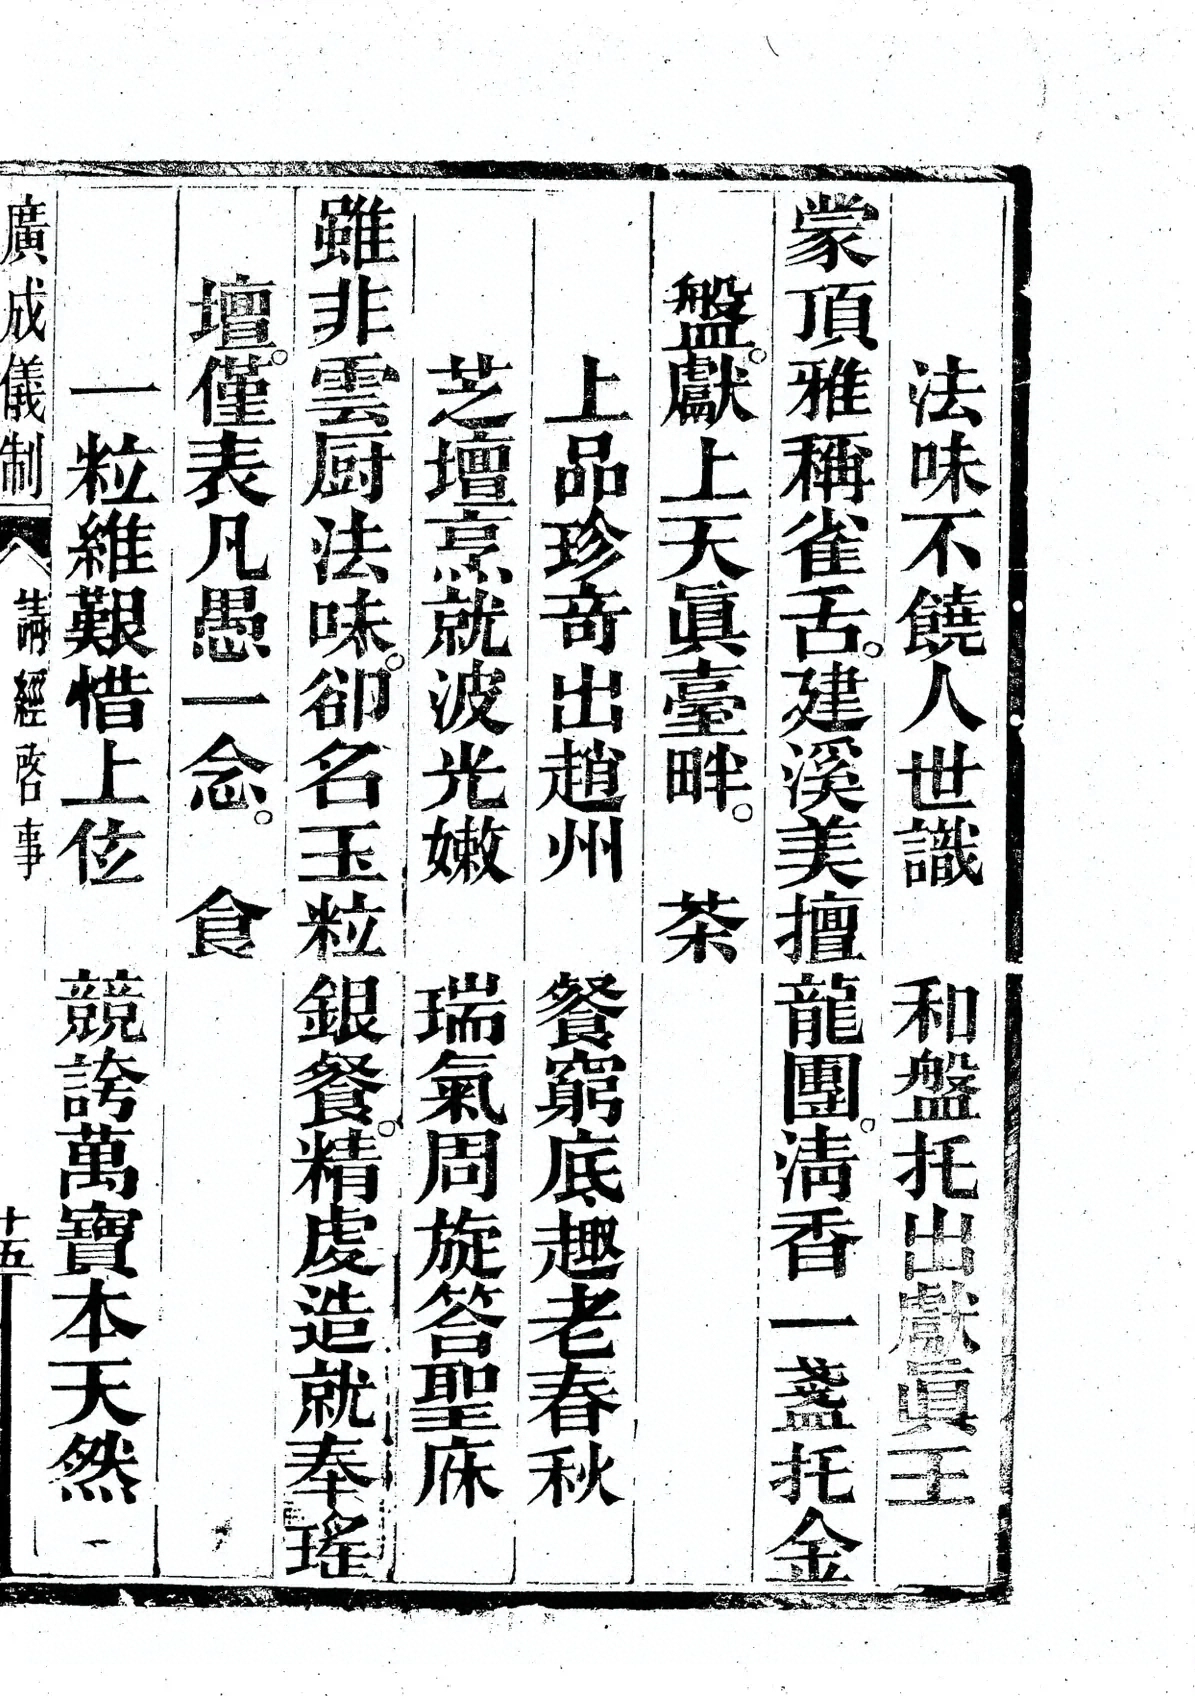 法味不饒人世識　和盤托出獻眞王
蒙頂雅稱雀舌。建溪美擅龍團。淸香一盞托金
盤。獻上天眞臺畔。　茶
上品珍奇出趙州　餐窮底趣老春秋
芝壇烹就波光嫩　瑞氣周旋答聖庥
雖非雲厨法味。卻名玉粒銀餐。精處造就奉瑤
壇。僅表凡愚一念。　食
一粒維艱惜上位　競誇萬寶本天然
廣成儀制　請經啓事　十五